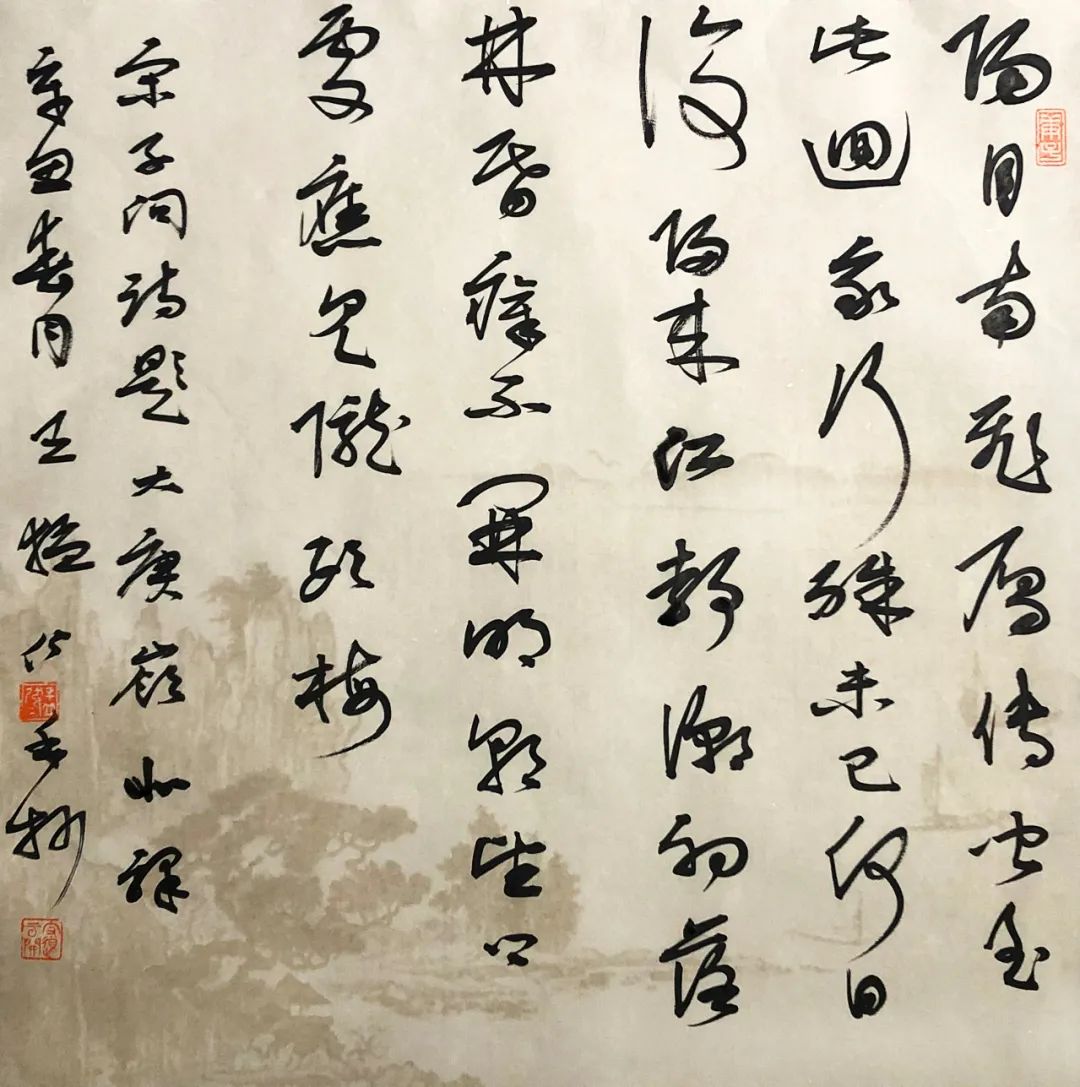 陽月南飛雁傳聞至
此迴我行殊未已何日
復歸來江靜潮初落
林昏瘴不開明朝望鄉
處應見隴頭梅
宋之問詩題大庾嶺北驛
辛丑春月王猛仁